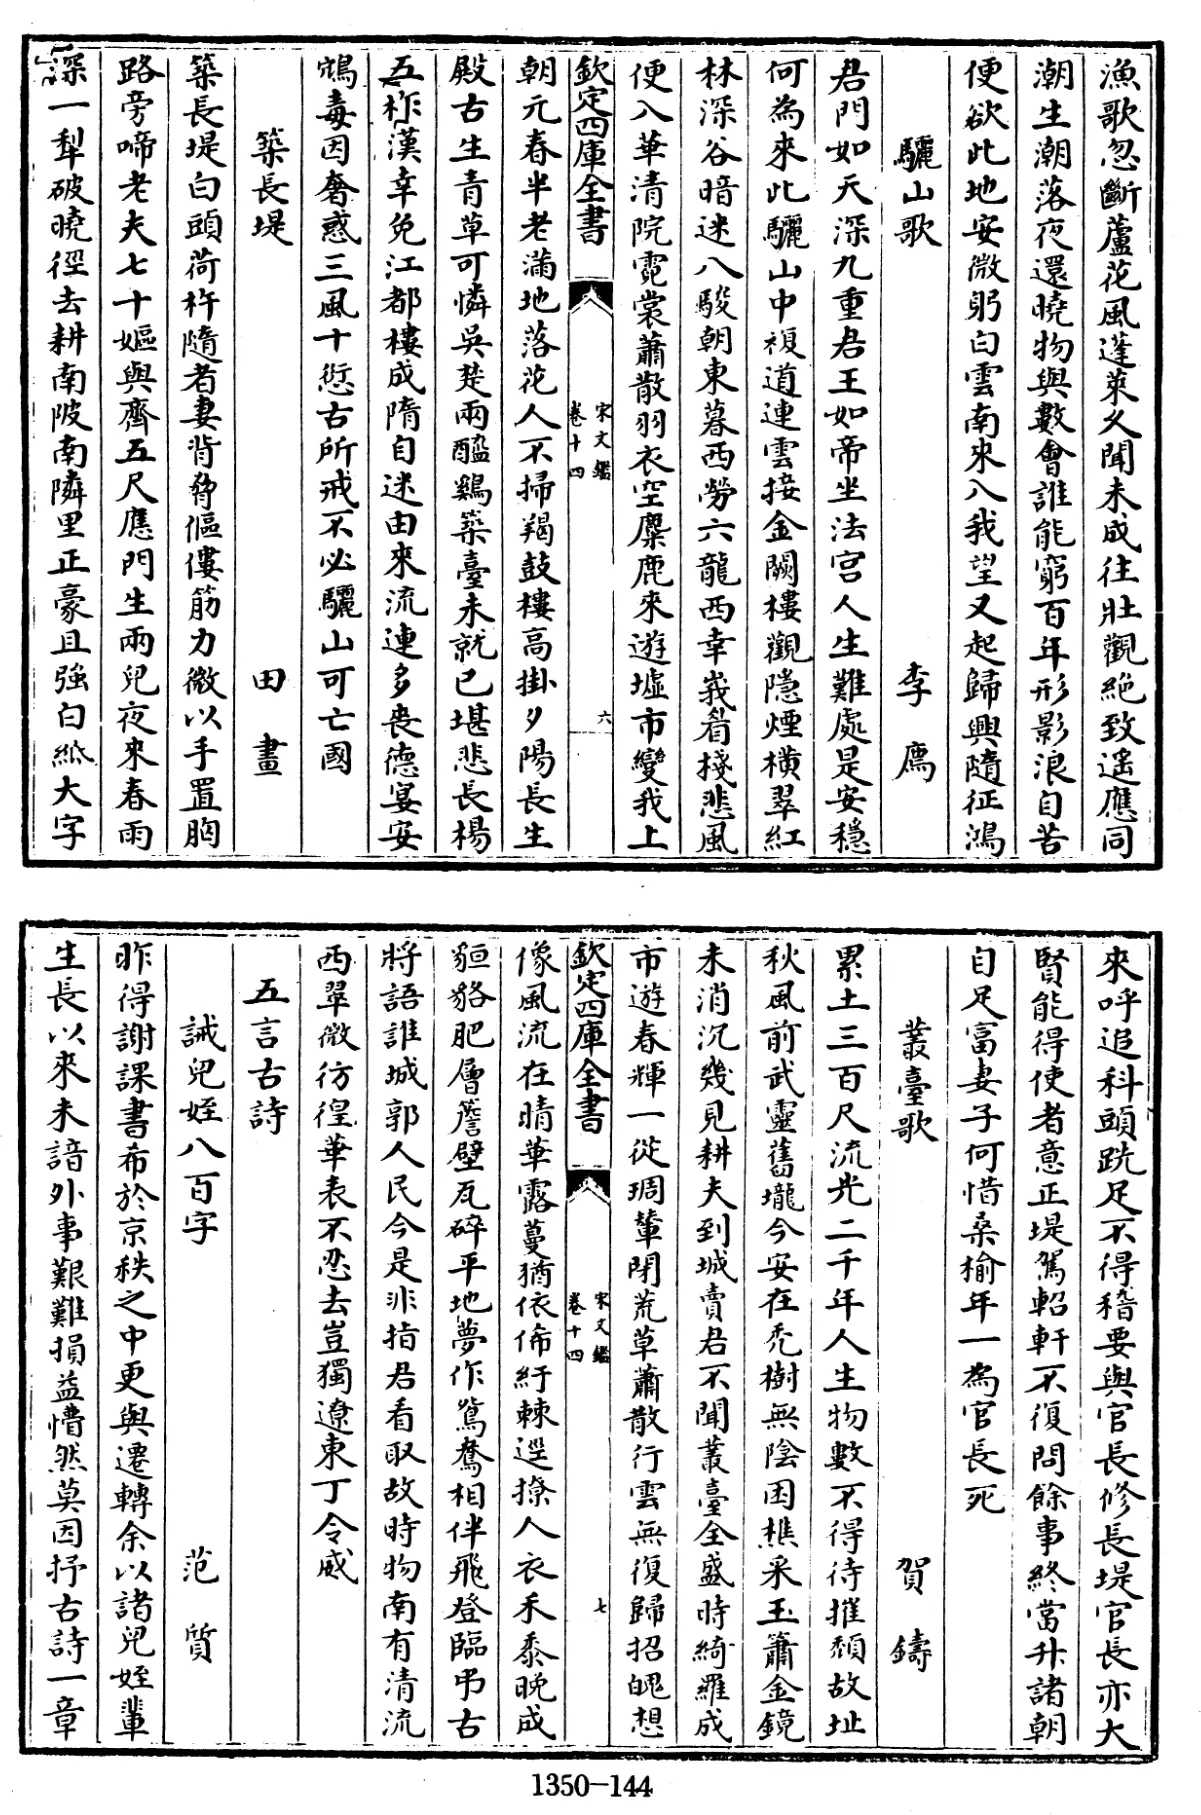 漁歌忽斷蘆花風蓬萊久聞未成往壯觀絶致遥應同
潮生潮落夜還曉物與數㑹誰能窮百年形影浪自苦
便欲此地安微躬白雲南來入我望又起歸興隨征鴻
驪山歌 李廌
君門如天深九重君王如帝坐法宫人生難處是安穏
何為來此驪山中複道連雲接金闕樓觀隠煙橫翠紅
林深谷暗迷八駿朝東暮西勞六龍西幸峩眉棧悲風
便入華清院霓裳蕭散羽衣空麋鹿來遊墟市變我上
欽定四庫全書 宋文鑑 卷十四 六
朝元春半老滿地落花人不掃羯鼓樓高掛夕陽長生
殿古生青草可憐吳楚兩醯鷄築臺未就已堪悲長楊
五柞漢幸免江都樓成隋自迷由來流連多喪德宴安
鴆毒因奢惑三風十愆古所戒不必驪山可亡國
築長堤 田晝
築長堤白頭荷杵隨者妻背脅傴僂筋力微以手置胸
路旁啼老夫七十嫗與齊五尺應門生兩兒夜來春雨
深一犁破曉徑去耕南陂南隣里正豪且強白紙大字
來呼追科頭跣足不得稽要與官長修長堤官長亦大
賢能得使者意正堤駕軺軒不復問餘事終當升諸朝
自足富妻子何惜桑榆年一為官長死
叢臺歌 賀鑄
累土三百尺流光二千年人生物數不得待摧頽故址
秋風前武靈舊壠今安在禿樹無陰困樵采玉簫金鏡
未消沉幾見耕夫到城賣君不聞叢臺全盛時綺羅成
市遊春輝一從琱輦閉荒草蕭散行雲無復歸招魄想
像風流在晴華露蔓猶依佈紆棘逕撩人衣禾黍晚成
欽定四庫全書 宋文鑑 卷十四 七
貆貉肥層簷壁瓦碎平地夢作鴛鴦相伴飛登臨弔古
將語誰城郭人民今是非指君看取故時物南有清流
西翠微彷徨華表不忍去豈獨遼東丁令威
五言古詩
誡兒姪八百字 范質
昨得謝課書希於京秩之中更與遷轉余以諸兒姪輩
生長以來未諳外事艱難損益懵然莫因抒古詩一章
1350-144